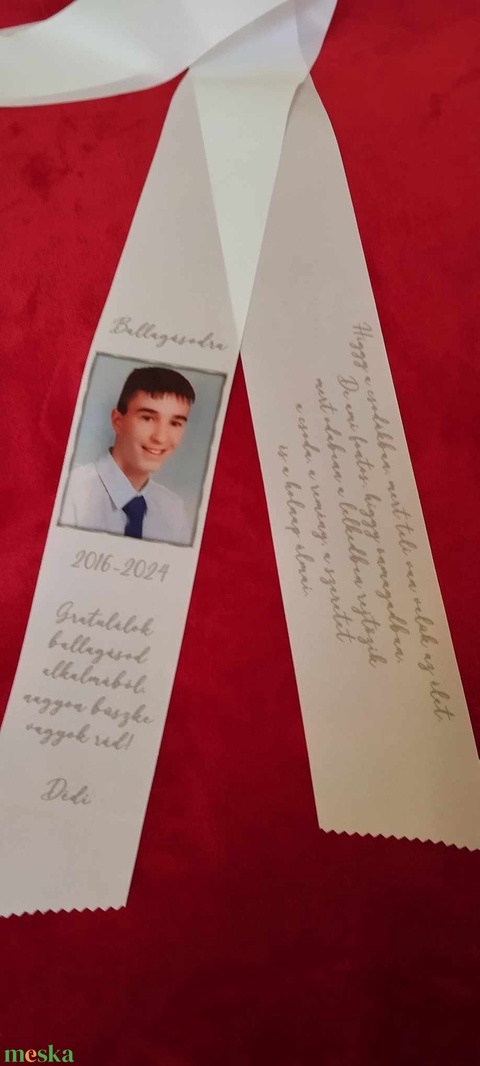 Ballagásodra
2016-2024
Gratulálok
ballagásod
alkalmából,
nagyon büszke
vagyok rád!
Dédi
Higgy a csodákban, mert teli van velük az élet.
De ami fontos, higgy önmagadban,
mert odabenn a lelkedben rejtőzik
a csoda, a remény, a szeretet
és a holnap álmai.
meska